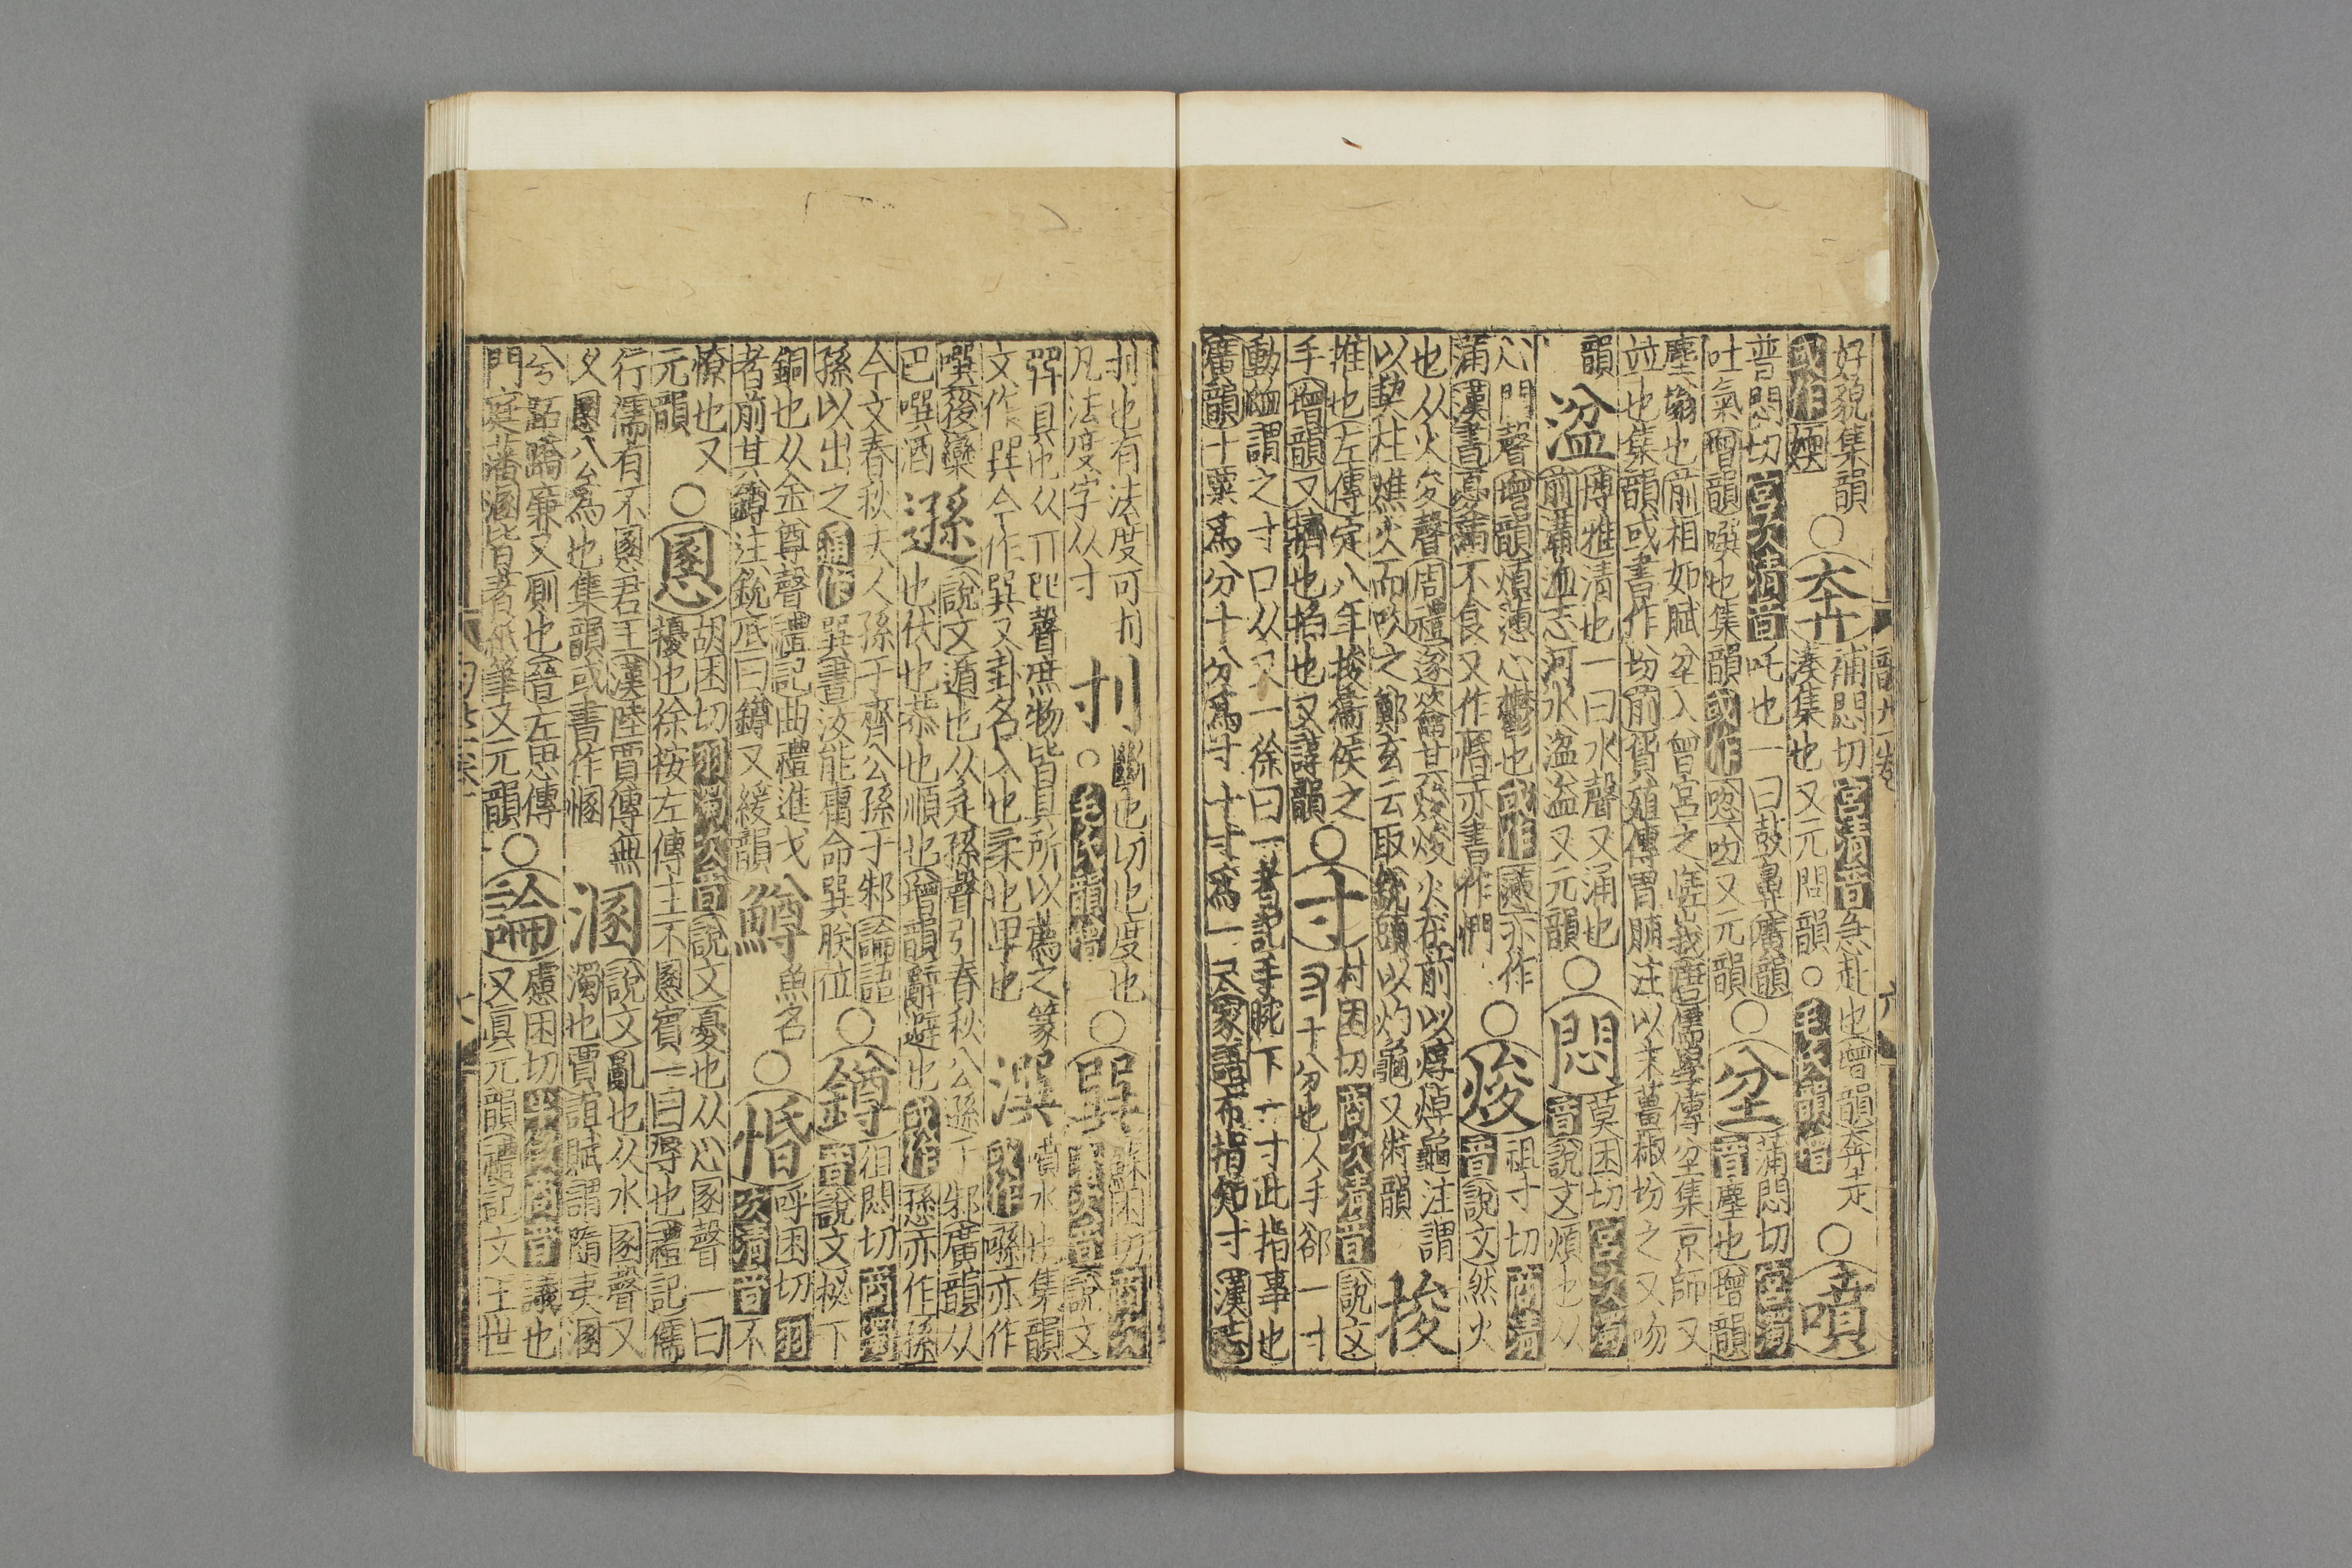 好貌集韻
或作㜷
○奔
補悶切宮清音急赴也增韻奔走
湊集也又元問韻○毛氏韻增
○噴
普悶切宮次清音吒也一曰鼓鼻廣韻
吐氣增韻噀也集韻或作唿吻又元韻
○坌
蒲悶切宮濁
音塵也增韻
塵塕也前相如賦坌入曾宮之嵯峩唐儒學傳坌集京師又
竝也集韻或書作坋前貨殖傳胃脯注以末薑椒坋之又吻
韻
湓
博雅清也一曰水聲又涌也
前溝洫志河水湓溢又元韻
○悶
莫困切宮次濁
音說文煩也从
心門聲增韻煩懣心鬱也或作懣亦作
滿漢書憂滿不食又作惛亦書作們
○焌
祖寸切商清
音說文然火
也从火夋聲周禮遂籥其焌焌火在前以焞焯龜注謂
以契柱燋火而吹之鄭玄云取銳頭以灼龜又術韻
捘
推也左傳定八年捘衛侯之
手增韻又擠也掐也又諄韻
○寸
村困切商次清音說文
寸十分也人手卻一寸
動𧖴謂之寸口从又一徐曰一者記手腕下一寸此指事也
廣韻十粟爲分十分爲寸十寸爲一尺家語布指知寸漢志
刌也有法度可刌
凡法度字从寸
刌
斷也切也度也
○毛氏韻增
○巽
蘇困切商次
清次音說文
巺具也从丌㔾聲庶物皆具所以薦之篆
文作巽今作巽又卦名入也柔也卑也
潠
噴水也集韻
或作噀亦作
噀後欒
巴噀酒
遜
說文遁也从辵孫聲引春秋公遜于邾廣韻从
也伏也恭也順也增韻辭避也或作愻亦作孫
今文春秋夫人孫于齊公孫于邾論語
孫以出之通作巽書汝能庸命巽朕位
○鐏
徂悶切商濁
音說文柲下
銅也从金尊聲禮記曲禮進戈
者前其鐏注銳底曰鐏又緩韻
鱒
魚名
○惛
呼困切羽
次清音不
憭也又
元韻
○慁
胡困切羽濁次音說文憂也从心圂聲一曰
擾也徐按左傳主不慁賓一曰辱也禮記儒
行儒有不慁君王漢陸賈傳無
久慁公爲也集韻或書作㥵
溷
說文亂也从水圂聲又
濁也賈誼賦謂隨夷溷
兮跖蹻廉又厠也晉左思傳
門庭藩溷皆著紙筆又元韻
○論
慮困切半徵商音議也
又真元韻禮記文王世